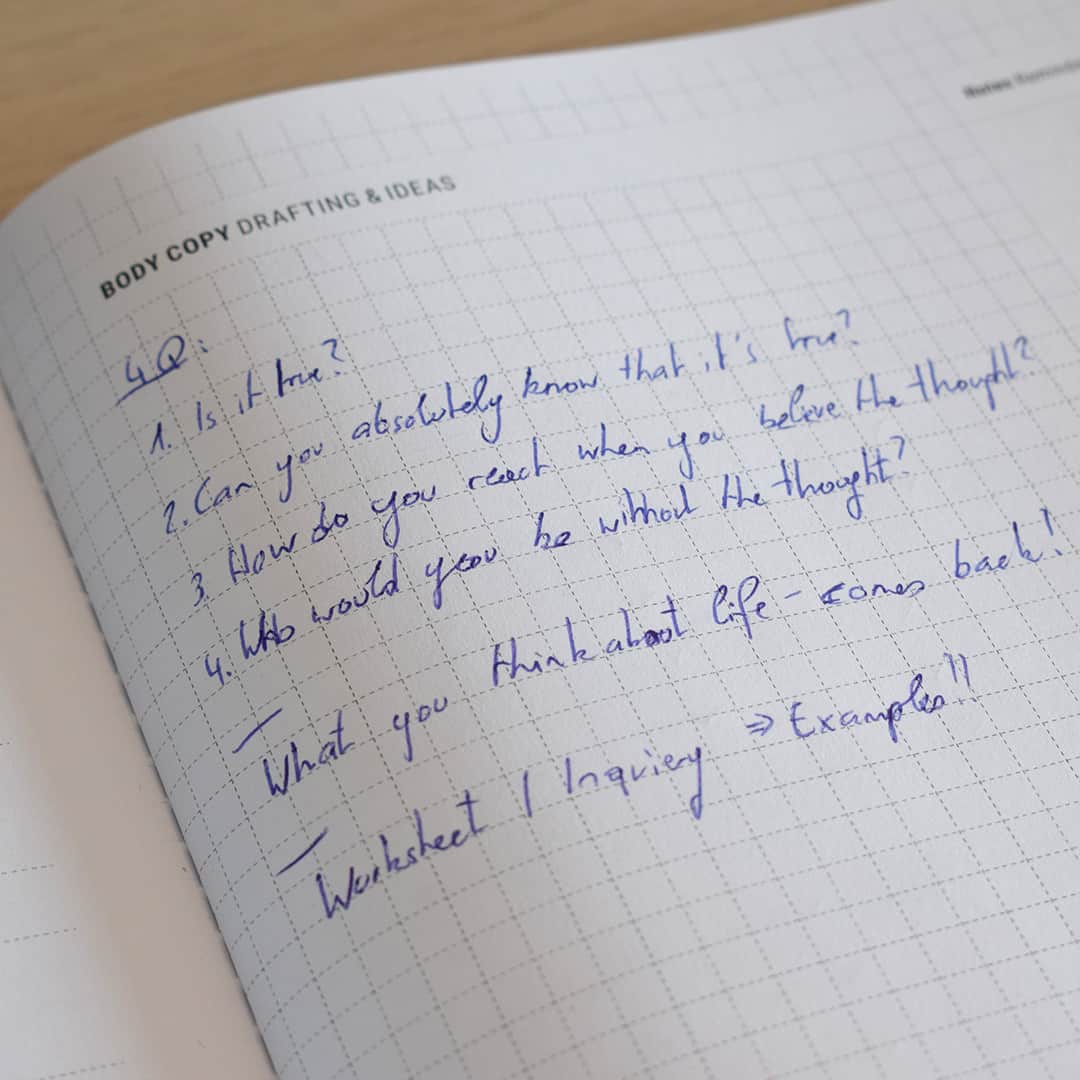 Notes
BODY COPY DRAFTING & IDEAS
4Q:
1. Is it true?
2. Can you absolutely know that it's true?
3. How do you react when you believe the thought?
4. Who would you be without the thought?
— What you think about life - comes back!
— Worksheet / Inquiery ⇒ Examples!!